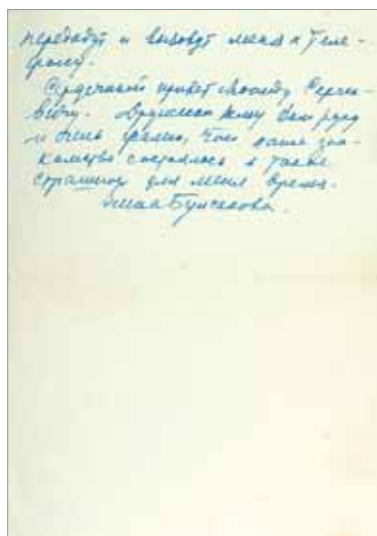 передадут и вызовут меня к теле-
фону.
Сердечный привет Серге-
евичу. Дружески жму Вам руку
и очень жалею, что наше зна-
комство состоялось в такое
страшное для меня время.
Елена Булгакова.